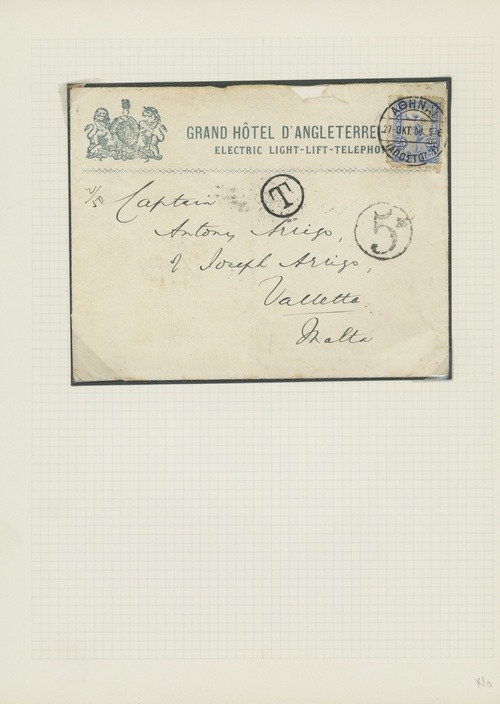 GRAND HÔTEL D'ANGLETERRE
ELECTRIC LIGHT-LIFT-TELEPHON
ΑΘΗΝ
27 ΟΚΤ
T
5
Captain
Antony Arrigo,
Joseph Arrigo,
Valletta
Malta
No